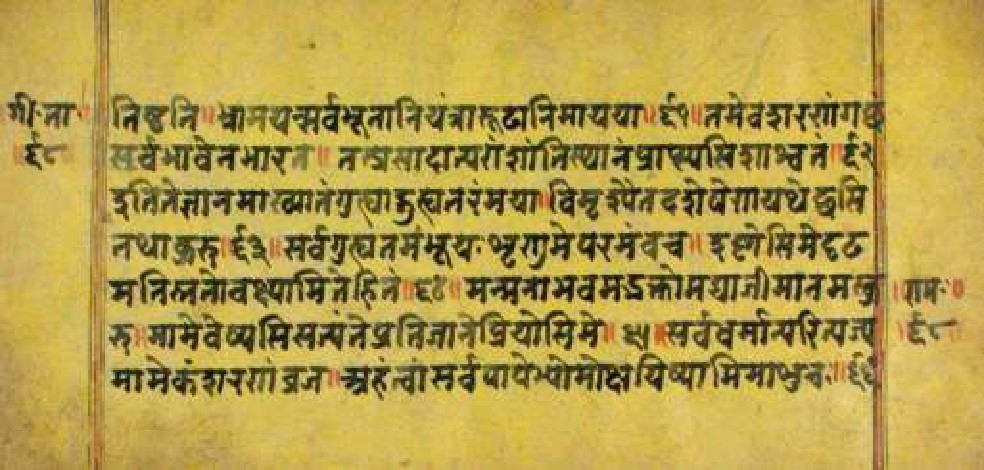 गी॰ता॰
६८
तिष्टति॥भ्रामयन्सर्वभूतानियंत्रारूढानिमायया॥६१॥तमेवशरणंगछ
सर्वभावेनभारत॥तत्प्रसादात्परांशांतिंस्थानंप्राप्स्यसिशाश्वतं॥६२
इतितेज्ञानमाख्यातंगुह्याद्गुह्यतरंमया॥विमृश्यैतदशेषेणयथेछसि
तथाकुरु॥६३॥सर्वगुह्यतमंभूयःभृणुमेपरमंवच॥इष्टोसिमेदृढ
मतिस्ततोवक्ष्यामितेहितं॥६४॥मन्मनाभवमद्भक्तोमद्याजीमांनमस्कु
रु॥मामेवैष्यसिसत्यंतेप्रतिजानेप्रियोसिमे॥६५॥सर्वधर्मान्परित्यज्य
मामेकंशरणंव्रज॥अहंत्वांसर्वपापेभ्योमोक्षयिष्यामिमाशुचः॥६६
राम॰
६८